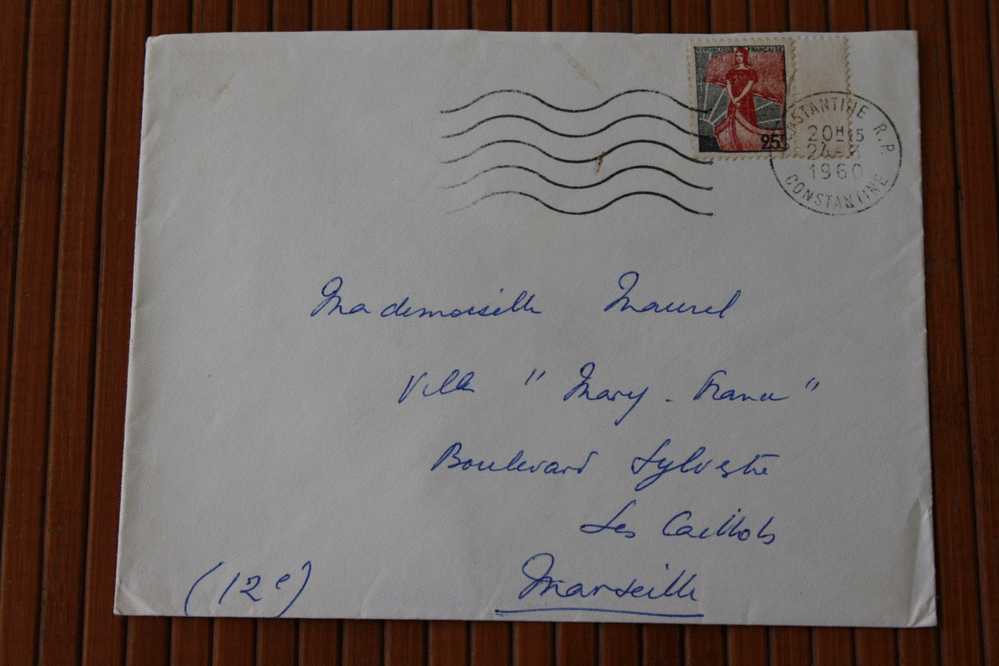 REPUBLIQUE FRANÇAISE
25F
CONSTANTINE R.P.
20H15
24-3
1960
CONSTANTINE
Mademoiselle Maurel
Villa " Mary - France "
Boulevard Sylvestre
Les Caillols
(12e) Marseille